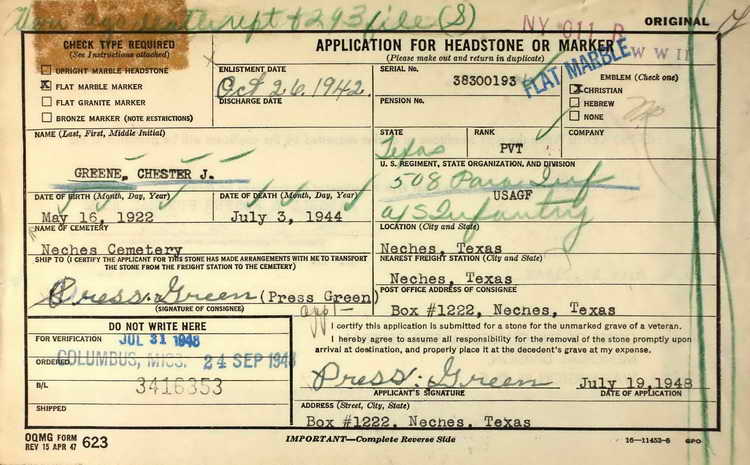 293 file (S)
NY 011 R
ORIGINAL
CHECK TYPE REQUIRED
(See Instructions attached)
UPRIGHT MARBLE HEADSTONE
X FLAT MARBLE MARKER
FLAT GRANITE MARKER
BRONZE MARKER (NOTE RESTRICTIONS)
APPLICATION FOR HEADSTONE OR MARKER
(Please make out and return in duplicate)
FLAT MARBLE
W W II
ENLISTMENT DATE
Oct 26, 1942.
DISCHARGE DATE
SERIAL No.
38300193
PENSION No.
EMBLEM (Check one)
X CHRISTIAN
HEBREW
NONE
NAME (Last, First, Middle Initial)
GREENE, CHESTER J.
STATE
Texas
RANK
PVT
COMPANY
U. S. REGIMENT, STATE ORGANIZATION, AND DIVISION
508 Para Inf
USAGF
A/S Infantry
DATE OF BIRTH (Month, Day, Year)
May 16, 1922
DATE OF DEATH (Month, Day, Year)
July 3, 1944
NAME OF CEMETERY
Neches Cemetery
LOCATION (City and State)
Neches, Texas
SHIP TO (I CERTIFY THE APPLICANT FOR THIS STONE HAS MADE ARRANGEMENTS WITH ME TO TRANSPORT
THE STONE FROM THE FREIGHT STATION TO THE CEMETERY)
Press. Green (Press Green)
(SIGNATURE OF CONSIGNEE)
NEAREST FREIGHT STATION (City and State)
Neches, Texas
POST OFFICE ADDRESS OF CONSIGNEE
Box #1222, Neches, Texas
appl-
DO NOT WRITE HERE
FOR VERIFICATION JUL 31 1948
ORDERED COLUMBUS, MISS. 24 SEP 1948
B/L 3416353
SHIPPED
I certify this application is submitted for a stone for the unmarked grave of a veteran.
I hereby agree to assume all responsibility for the removal of the stone promptly upon
arrival at destination, and properly place it at the decedent's grave at my expense.
Press. Green July 19, 1948
APPLICANT'S SIGNATURE DATE OF APPLICATION
ADDRESS (Street, City, State)
Box #1222, Neches, Texas
OQMG FORM
REV 15 APR 47 623
IMPORTANT—Complete Reverse Side
16—11453-6 GPO